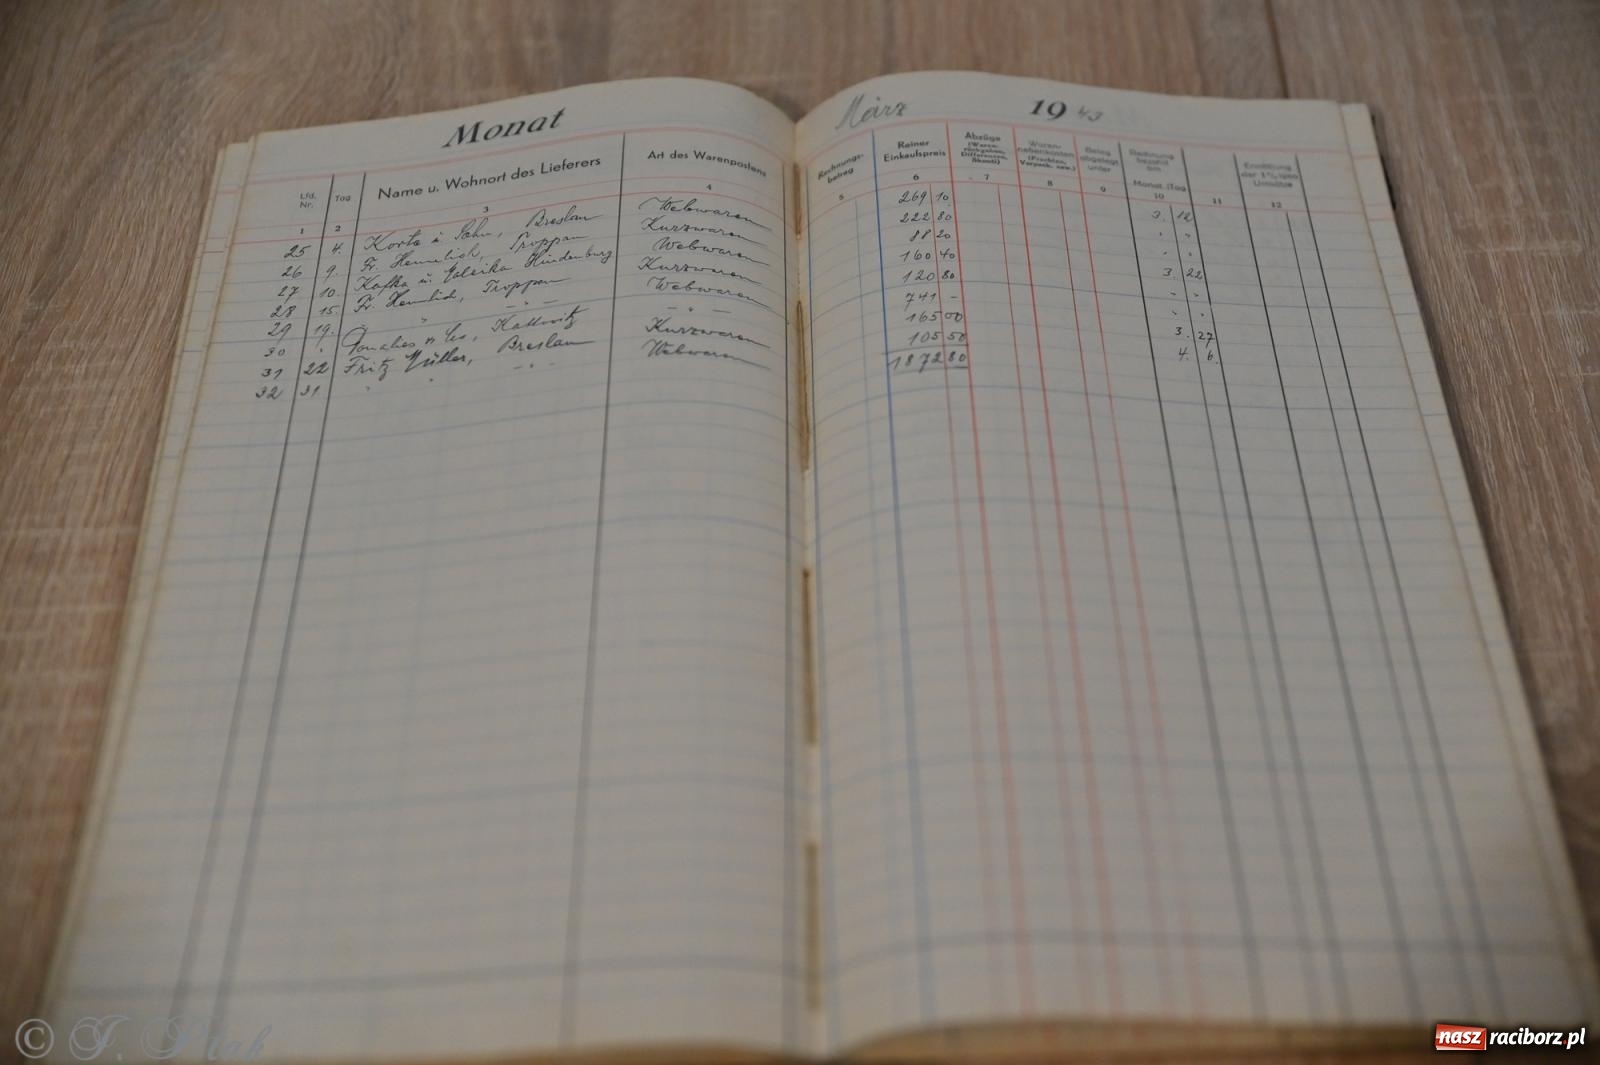 Monat März 19 43
Lfd. Nr. Tag Name u. Wohnort des Lieferers Art des Warenpostens Rechnungs-betrag Reiner Einkaufspreis Abzüge (Waren-rückgaben, Differenzen, Skonti) Waren-nebenkosten (Frachten, Verpack. usw.) Beleg abgelegt unter Rechnung bezahlt am Monat Tag
1 2 3 4 5 6 7 8 9 10 11 12
25 4. u. Sohn, Breslau Webwaren 269 10 3. 12
26 9. Fr. Troppau Kurzwaren 222 80 " "
27 10. Kafka u. Hindenburg Webwaren 88 20 " "
28 15. Fr. Troppau Kurzwaren 160 40 3. 22
29 19. " – " – Webwaren 120 80 " "
30 " Kattowitz – " – 741 – " "
31 22 Fritz Müller, Breslau Kurzwaren 165 00 3. 27
32 31 " " – " – Webwaren 105 50 4. 6.
1872 80
© J. Ptak
nasz raciborz.pl